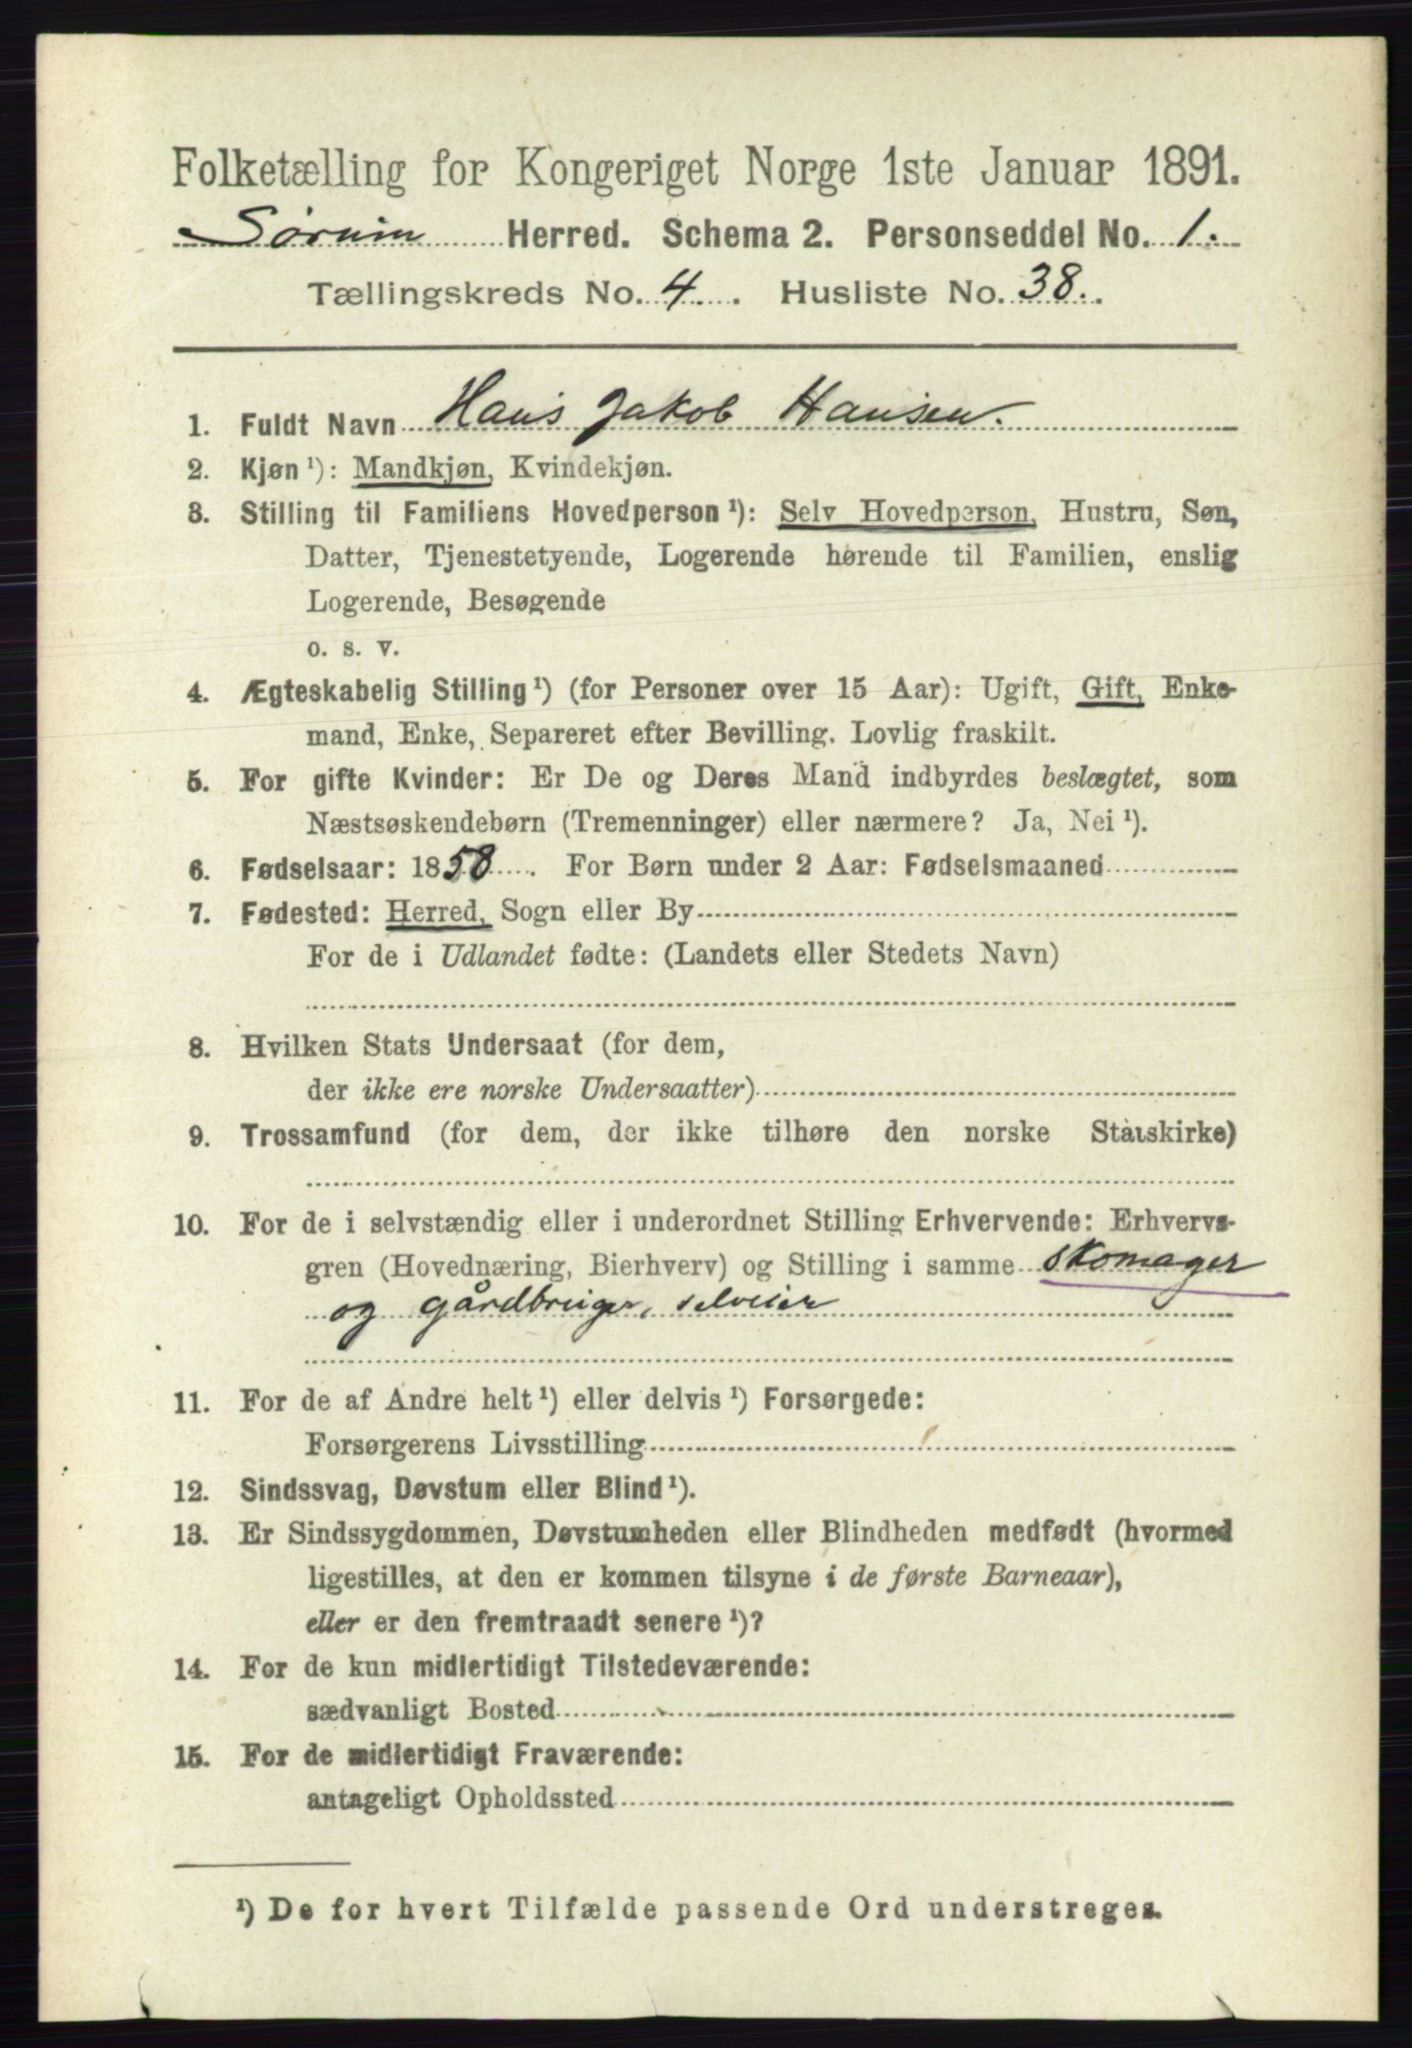 Folketælling for Kongeriget Norge 1ste Januar 1891.
Sørum Herred. Schema 2. Personseddel No. 1.
Tællingskreds No. 4. Husliste No. 38.
1. Fuldt Navn Hans Jakob Hansen.
2. Kjøn ¹): Mandkjøn, Kvindekjøn.
3. Stilling til Familiens Hovedperson ¹): Selv Hovedperson, Hustru, Søn,
Datter, Tjenestetyende, Logerende hørende til Familien, enslig
Logerende, Besøgende
o. s. v.
4. Ægteskabelig Stilling ¹) (for Personer over 15 Aar): Ugift, Gift, Enke-
mand, Enke, Separeret efter Bevilling. Lovlig fraskilt.
5. For gifte Kvinder: Er De og Deres Mand indbyrdes beslægtet, som
Næstsøskendebørn (Tremenninger) eller nærmere? Ja, Nei ¹).
6. Fødselsaar: 1858. For Børn under 2 Aar: Fødselsmaaned
7. Fødested: Herred, Sogn eller By
For de i Udlandet fødte: (Landets eller Stedets Navn)
8. Hvilken Stats Undersaat (for dem,
der ikke ere norske Undersaatter)
9. Trossamfund (for dem, der ikke tilhøre den norske Statskirke)
10. For de i selvstændig eller i underordnet Stilling Erhvervende: Erhvervs-
gren (Hovednæring, Bierhverv) og Stilling i samme skomager
og gårdbruger, selveier
11. For de af Andre helt ¹) eller delvis ¹) Forsørgede:
Forsørgerens Livsstilling
12. Sindssvag, Døvstum eller Blind ¹).
13. Er Sindssygdommen, Døvstumheden eller Blindheden medfødt (hvormed
ligestilles, at den er kommen tilsyne i de første Barneaar),
eller er den fremtraadt senere ¹)?
14. For de kun midlertidigt Tilstedeværende:
sædvanligt Bosted
15. For de midlertidigt Fraværende:
antageligt Opholdssted
¹) De for hvert Tilfælde passende Ord understreges.